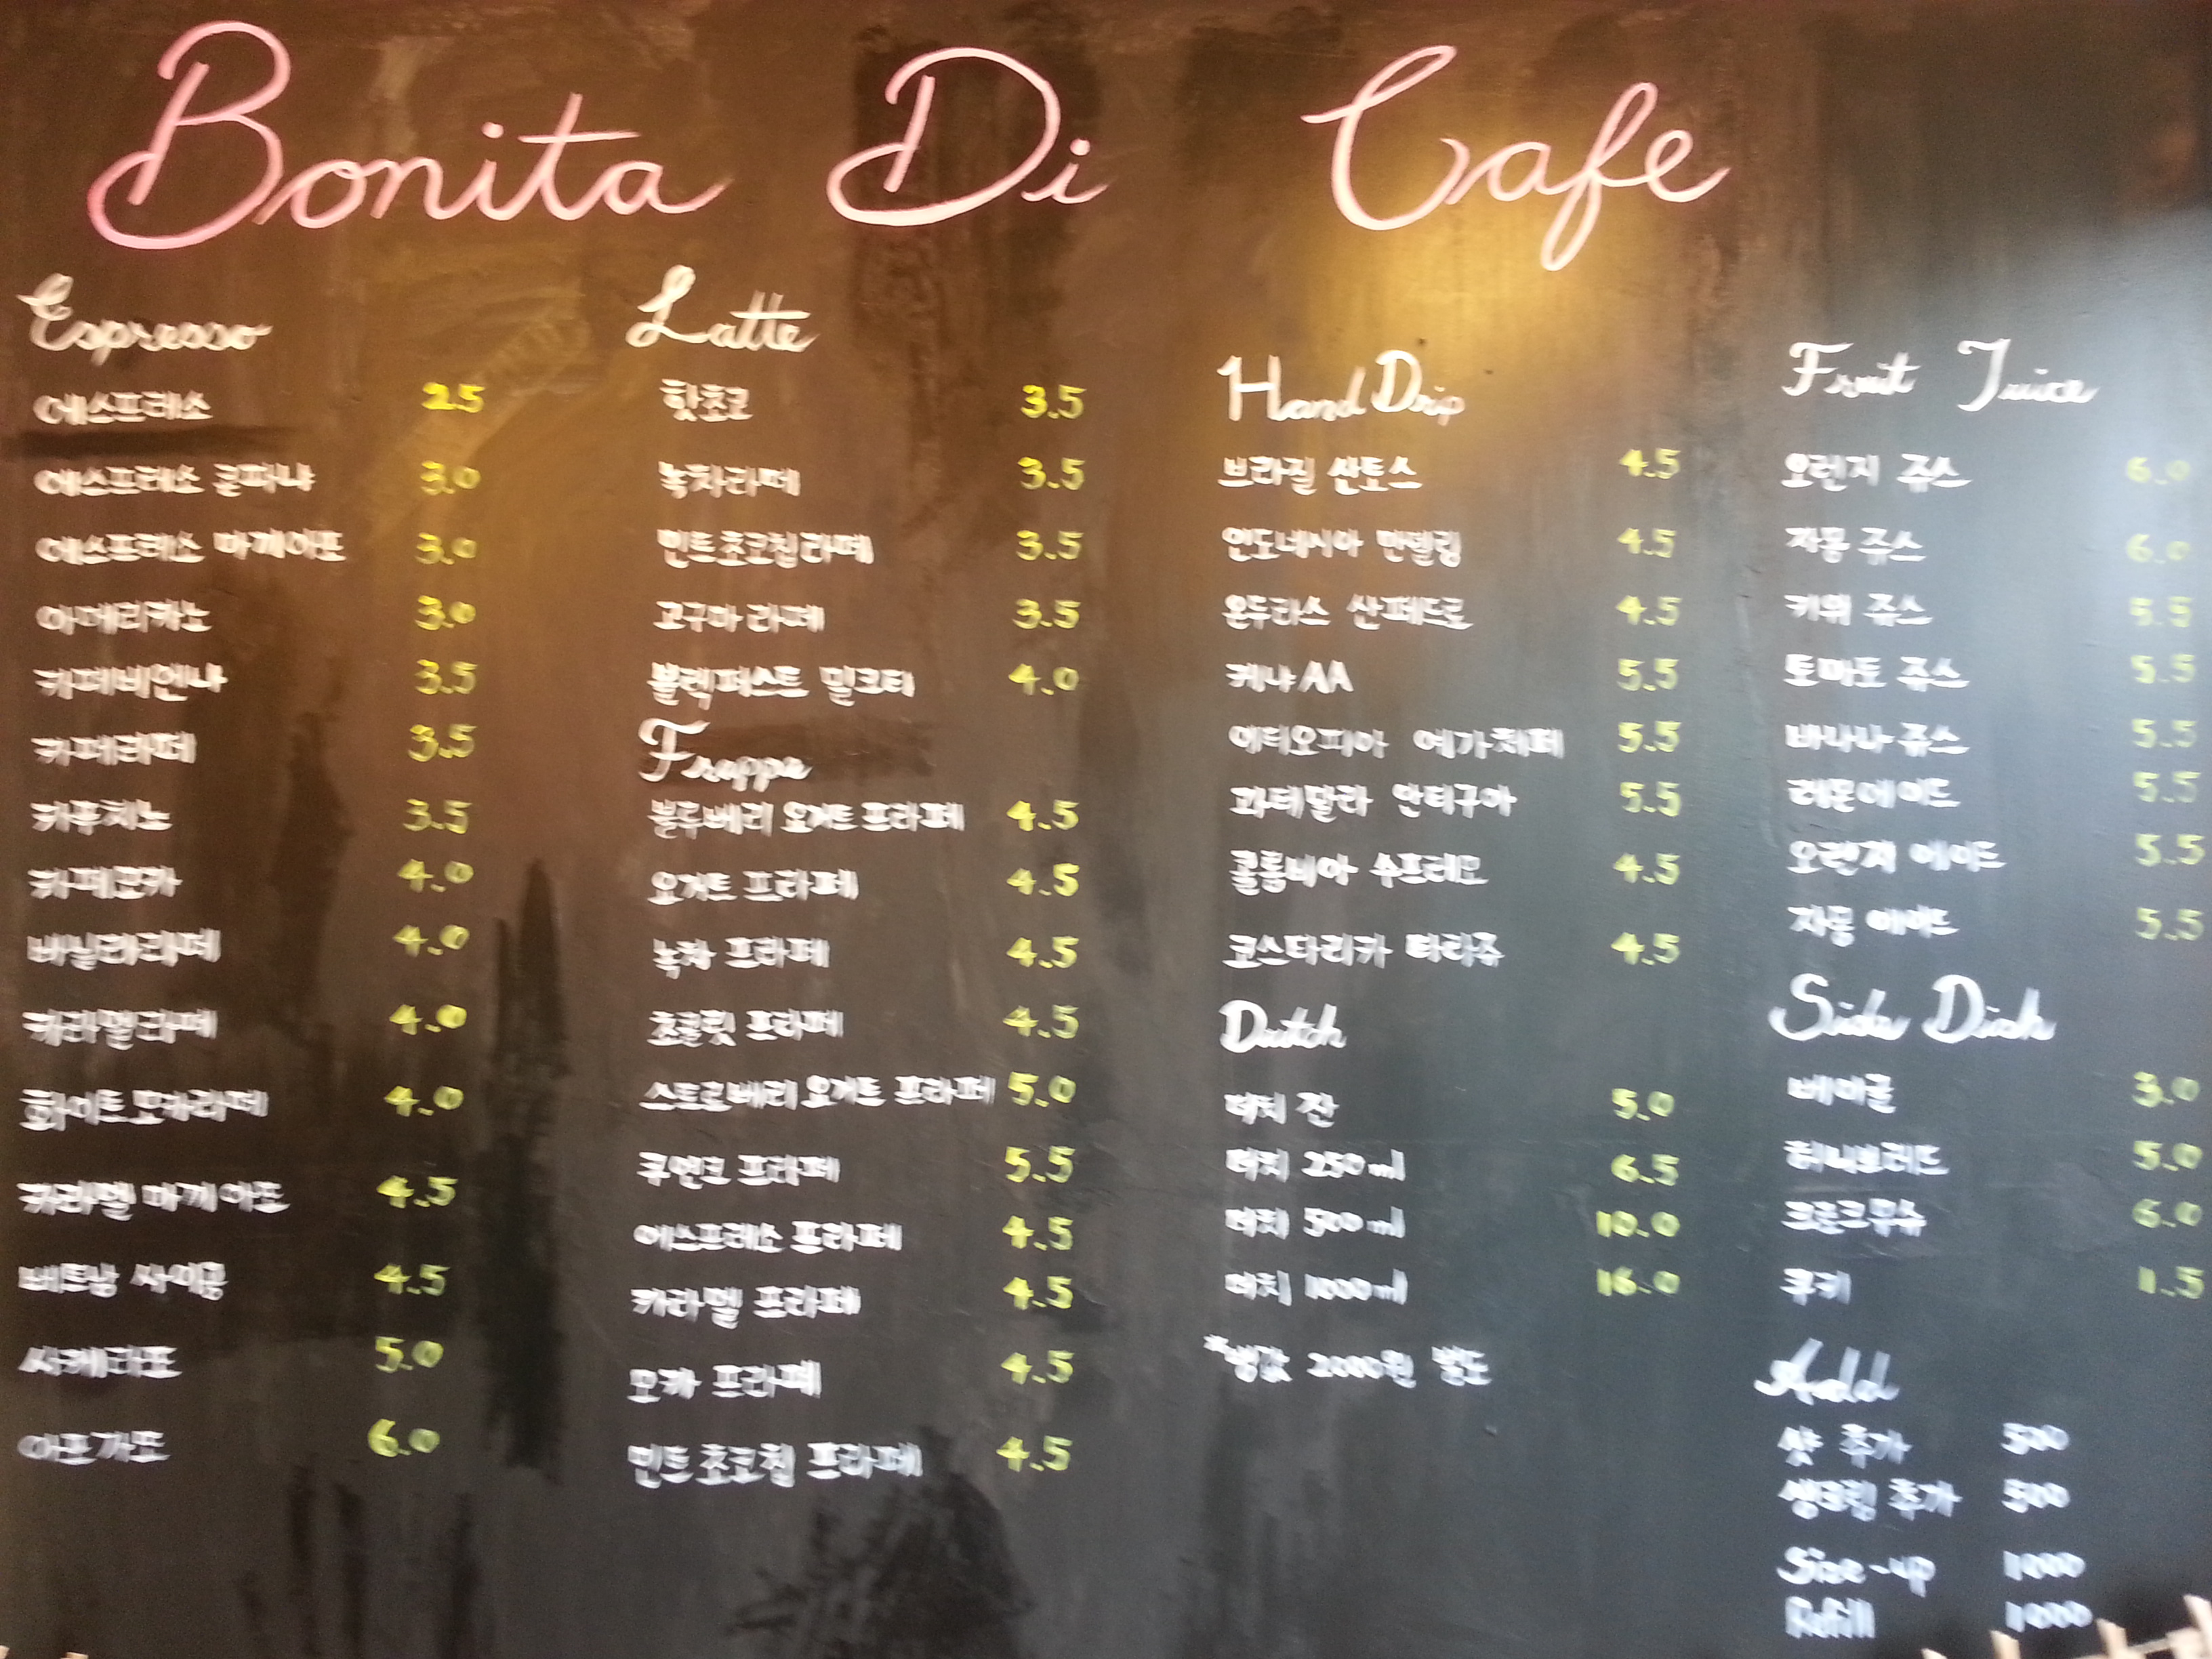 Bonita Di Cafe
Espresso
에스프레소 2.5
에스프레소 콘파냐 3.0
에스프레소 마게아또 3.0
아메리카노 3.0
카페비엔나 3.5
카페라떼 3.5
카푸치노 3.5
카페모카 4.0
바닐라라떼 4.0
카라멜라떼 4.0
화이트모카라떼 4.0
카라멜 마게아또 4.5
베트남 싸이공 4.5
샤케라또 5.0
아포가또 6.0
Latte
핫초코 3.5
녹차라떼 3.5
민트초코칩라떼 3.5
고구마 라떼 3.5
블랙퍼스트 밀크티 4.0
Frappe
블루베리 요거트 프라페 4.5
요거트 프라페 4.5
녹차 프라페 4.5
초콜릿 프라페 4.5
스트로베리 요거트 프라페 5.0
쿠앤크 프라페 5.5
에스프레소 프라페 4.5
카라멜 프라페 4.5
모카 프라페 4.5
민트 초코칩 프라페 4.5
Hand Drip
브라질 싼토스 4.5
인도네시아 만델링 4.5
온두라스 산페드로 4.5
케냐 AA 5.5
에티오피아 예가체페 5.5
과테말라 안티구아 5.5
콜롬비아 수프레모 4.5
코스타리카 따라쥬 4.5
Dutch
더치 잔 5.0
더치 250ml 6.5
더치 500ml 10.0
더치 1000ml 16.0
*병값 2000원 별도
Fruit Juice
오렌지 쥬스 6.0
자몽 쥬스 6.0
키위 쥬스 5.5
토마토 쥬스 5.5
바나나 쥬스 5.5
레몬에이드 5.5
오렌지 에이드 5.5
자몽 에이드 5.5
Side Dish
베이글 3.0
허니브레드 5.0
크로크무슈 6.0
쿠키 1.5
Add
샷 추가 500
생크림 추가 500
Size-up 1000
Refill 1000